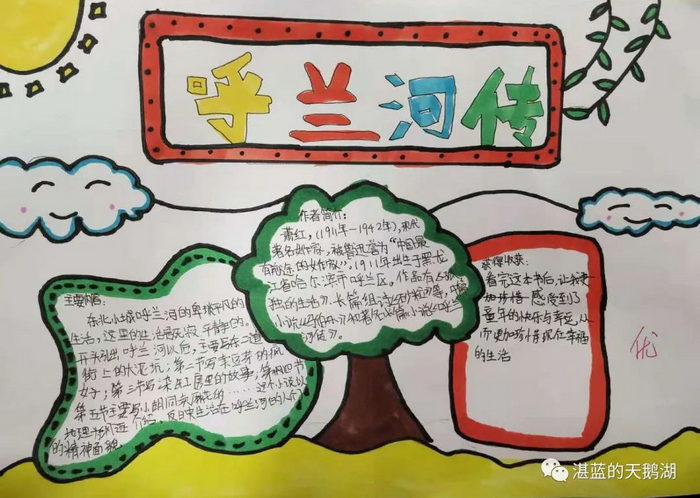 呼兰河传
作者简介:
萧红,(1911年-1942年),现代
著名女作家,被鲁迅誉为“中国最
有前途的女作家”。1911年出生于黑龙
江省哈尔滨市呼兰区。作品有
独的生活》、长篇组诗《砂粒》等,中篇
小说《马伯乐》和著名长篇小说《呼兰
河传》。
主要内容:
东北小城呼兰河的卑琐平凡的
生活,这里的生活是沉寂平静的。
开头引出呼兰河以后,主要写东二道
街上的大泥坑;第二节写
女子;第三节写染缸房里的故事;第四节
第五节主要写小胡同卖麻花的……这个小说以
地理为顺序介绍,反映生活在呼兰河的人们
的精神面貌
获得收获:
看完这本书后,让我更
加珍惜,感受到了
童年的快乐与幸运,从
而更加珍惜现在幸福
的生活
优
湛蓝的天鹅湖